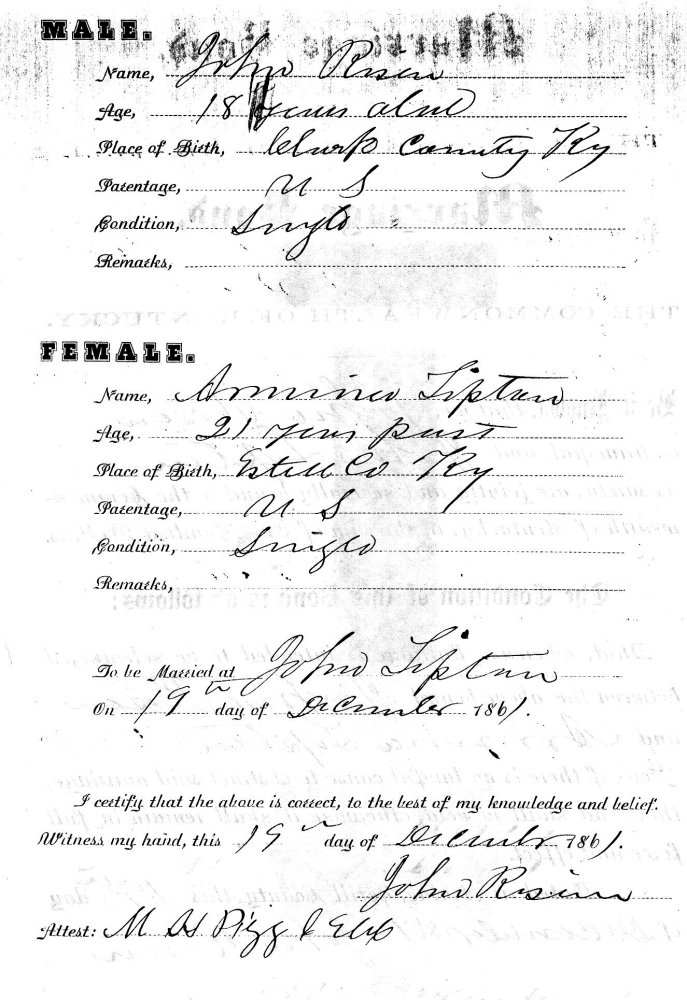 MALE.
Name, John Risen
Age, 18 years
Place of Birth, Clark County Ky
Parentage, U S
Condition, Single
Remarks,
THE COMMONWEALTH OF KENTUCKY.
FEMALE.
Name, Lipton
Age, 21 years past
Place of Birth, Estill Co Ky
Parentage, U S
Condition, Single
Remarks,
The Condition of this Bond is as follows:
To be Married at John Liptan
On 19th day of December 1861.
I certify that the above is correct, to the best of my knowledge and belief.
Witness my hand, this 19th day of December 1861.
John Risen
Attest: M H Pigg